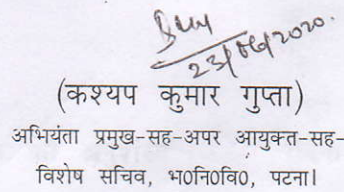 23/06/2020.
(कश्यप कुमार गुप्ता)
अभियंता प्रमुख-सह-अपर आयुक्त-सह-
विशेष सचिव, भ0नि0वि0, पटना।